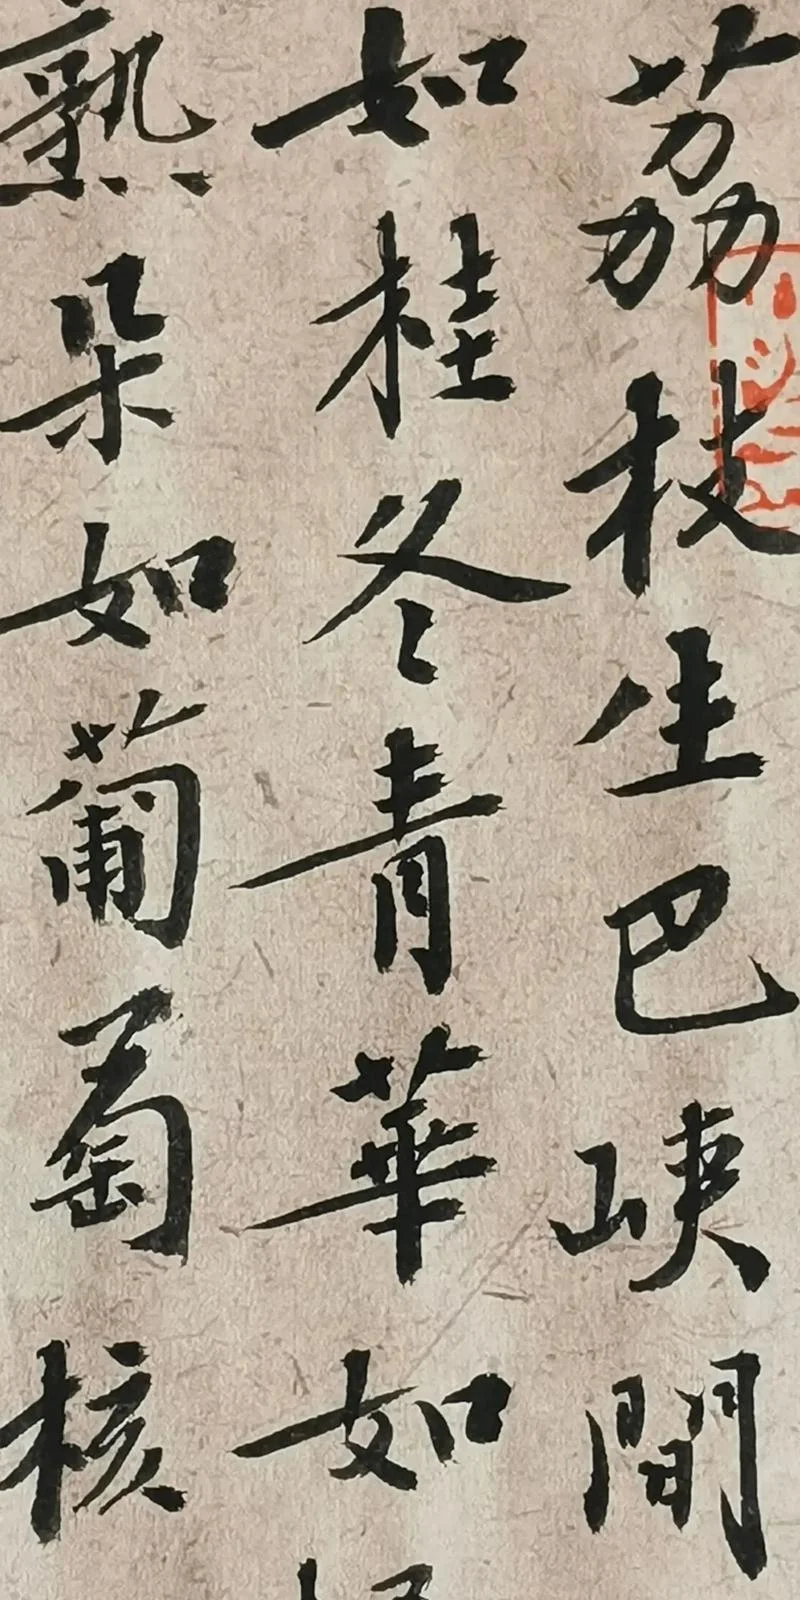 荔枝生巴峽間
如桂冬青華如
熟朵如葡萄核